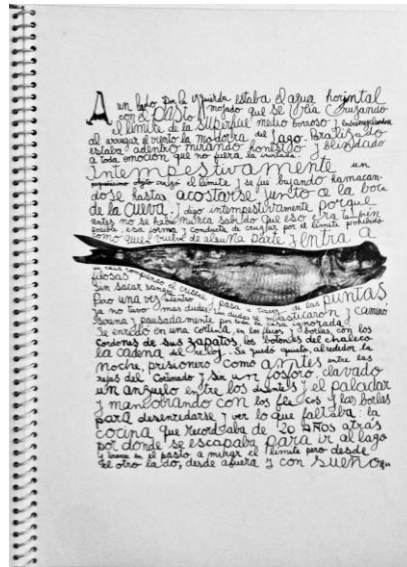 A un lado por la izquierda estaba el agua horizontal
con el pasto mojado que se veía cruzando
el límite de la superficie medio borroso y
al arrugar el viento la modorra del lago. Paralizado
estaba adentro mirando honesto y blindado
a toda emoción que no fuera la
Intempestivamente un
cruzó el límite y se fue bajando hamacan-
dose hasta acostarse junto a la boca
de la cueva. digo intempestivamente porque
antes no se había nunca sabido que eso era también
posible, esa forma y conducta de cruzar por el límite prohibido
como quien vuelve de alguna parte y entra a
su casa rompiendo el cristal y pasa a través de las puntas
filosas
sin sacar sangre
Pero una vez adentro
ya no tuvo mas dudas masticaron y caminó
serena y pausadamente por toda la casa ignorada
Se enredó en una cortina, en los flecos y borlas, con los
cordones de sus zapatos, los botones del chaleco
la cadena del reloj.. Se quedó quieto, alrededor la
noche, prisionero como antes entre las
rejas del y sin un fósforo, clavado
un anzuelo entre los dientes y el paladar
y maniobrando con los flecos y las borlas
para desenredarse y ver lo que faltaba: la
cocina que recordaba de 20 años atrás
por donde se escapaba para ir al lago
y en el pasto, a mirar el límite pero desde
el otro lado, desde afuera y con sueño